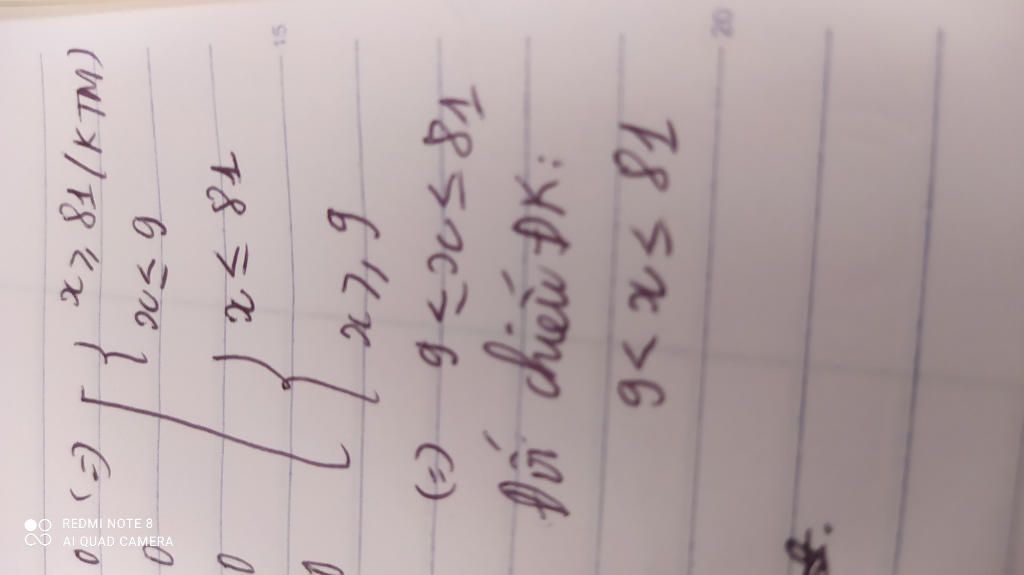 (=) [ { x ≥ 81 (KTM)
x ≤ 9
{ x ≤ 81
x ≥ 9
(=) 9 ≤ x ≤ 81
Đối chiếu ĐK:
9 < x ≤ 81
15
20
REDMI NOTE 8
AI QUAD CAMERA